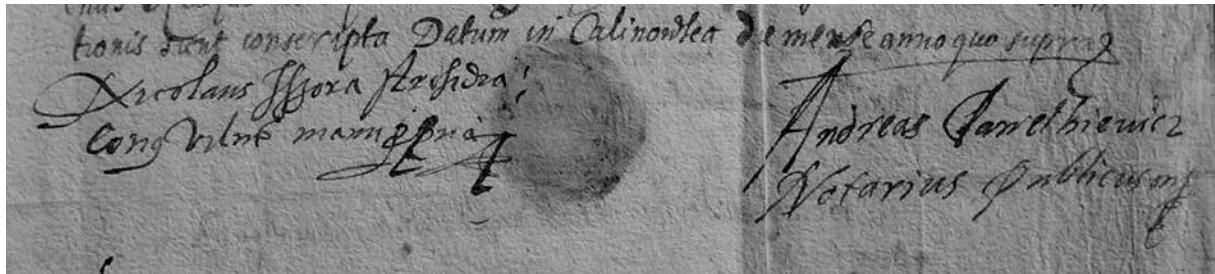 tionis sient conscripta Datum in Calinowlea die mense anno quo supra
Nicolaus Issora Archidia:
Cong Vilne manu ppria
Andreas Pawethiewicz
Notarius Publicus mp